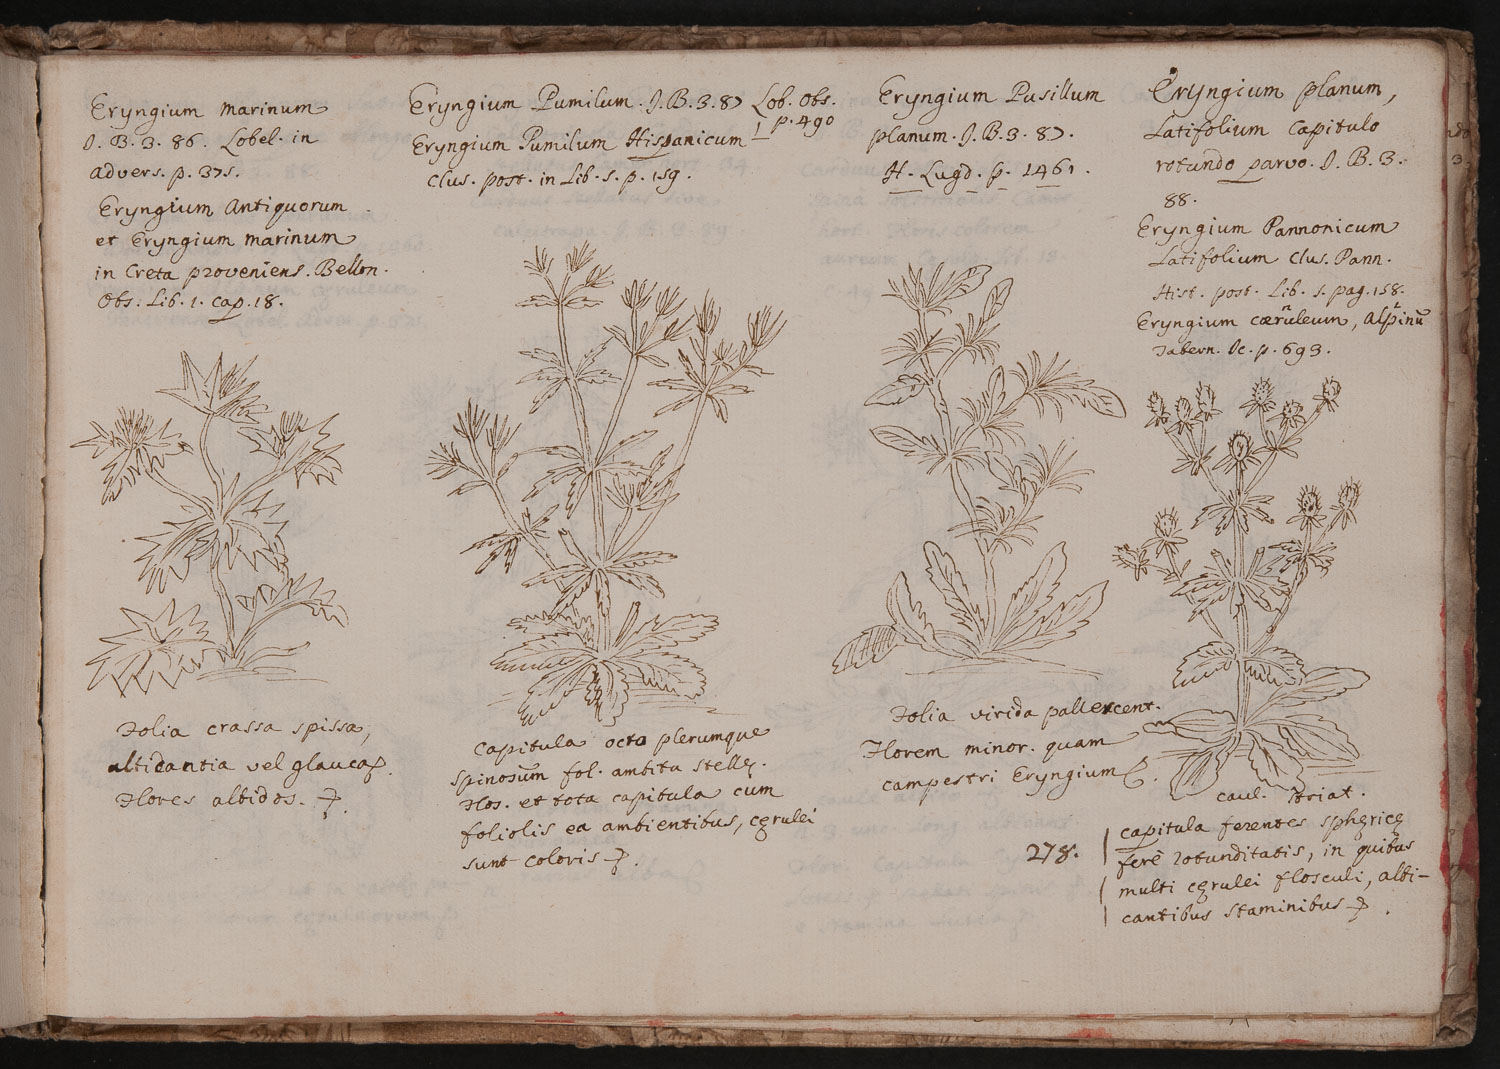 Eryngium marinum
J. B. 3. 86. Lobel. in
advers. p. 375.
Eryngium Antiquorum
et Eryngium marinum
in Creta proveniens. Bellon.
Obs. Lib. 1. cap. 18.
Folia crassa spissa,
altidantia vel glaucaȩ.
Flores albidos.
Eryngium Pumilum. J. B. 3. 87 Lob. Obs.
p. 490
Eryngium Pumilum Hispanicum
Clus. post. in Lib. 5. p. 159.
Capitula octo plerumque
spinosum fol. ambita stellȩ.
Flos. et tota capitula cum
foliolis ea ambientibus, cȩrulei
sunt coloris
Eryngium Pusillum
planum. J. B. 3. 87.
H. Lugd. p. 1461.
Folia virida pallescent.
Florem minor. quam
campestri Eryngium
Eryngium planum,
Latifolium capitulo
rotundo parvo. J. B. 3.
88.
Eryngium Pannonicum
Latifolium Clus. Pann.
Hist. post. Lib. 5. pag. 158.
Eryngium cœruleum, Alpinũ
Tabern. Ic. p. 693.
caul. striat.
capitula ferentes sphȩricȩ
ferè rotunditatis, in quibus
multi cȩrulei flosculi, albi-
cantibus staminibus
278.